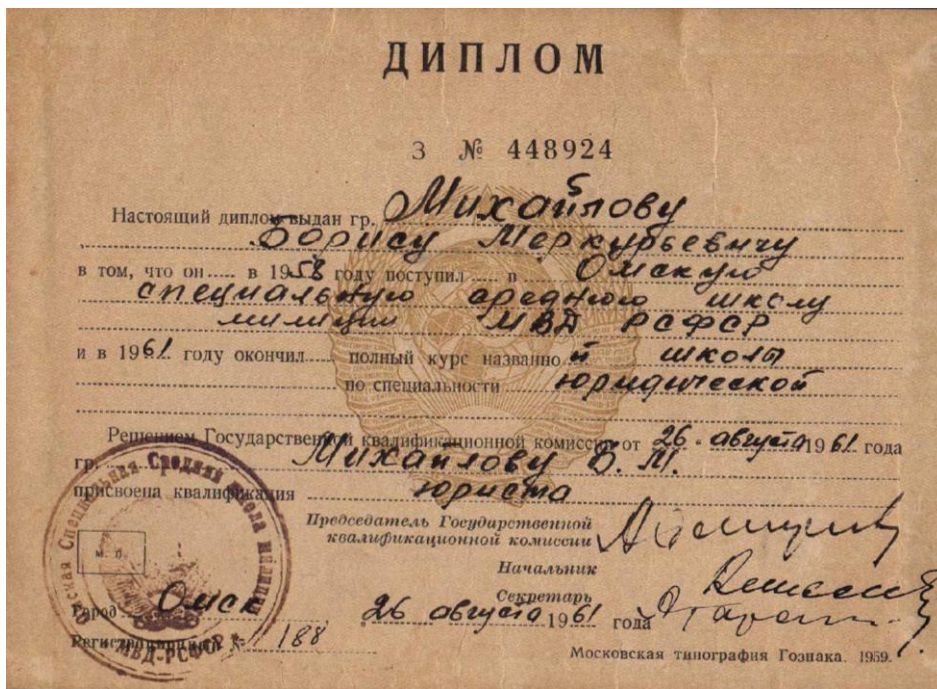 ДИПЛОМ
З № 448924
Настоящий диплом выдан гр. Михайлову
Борису Меркурьевичу
в том, что он в 1958 году поступил в Омскую
специальную среднюю школу
милиции МВД РСФСР
и в 1961 году окончил полный курс названной школы
по специальности юридической
Решением Государственной квалификационной комиссии от 26 августа 1961 года
гр. Михайлову Б. М.
присвоена квалификация юриста
Председатель Государственной
квалификационной комиссии
Начальник
Секретарь
Город Омск 26 августа 1961 года
Регистрационный № 188
Московская типография Гознака. 1959.
Омская Специальная Средняя Школа Милиции
МВД-РСФСР
М. П.